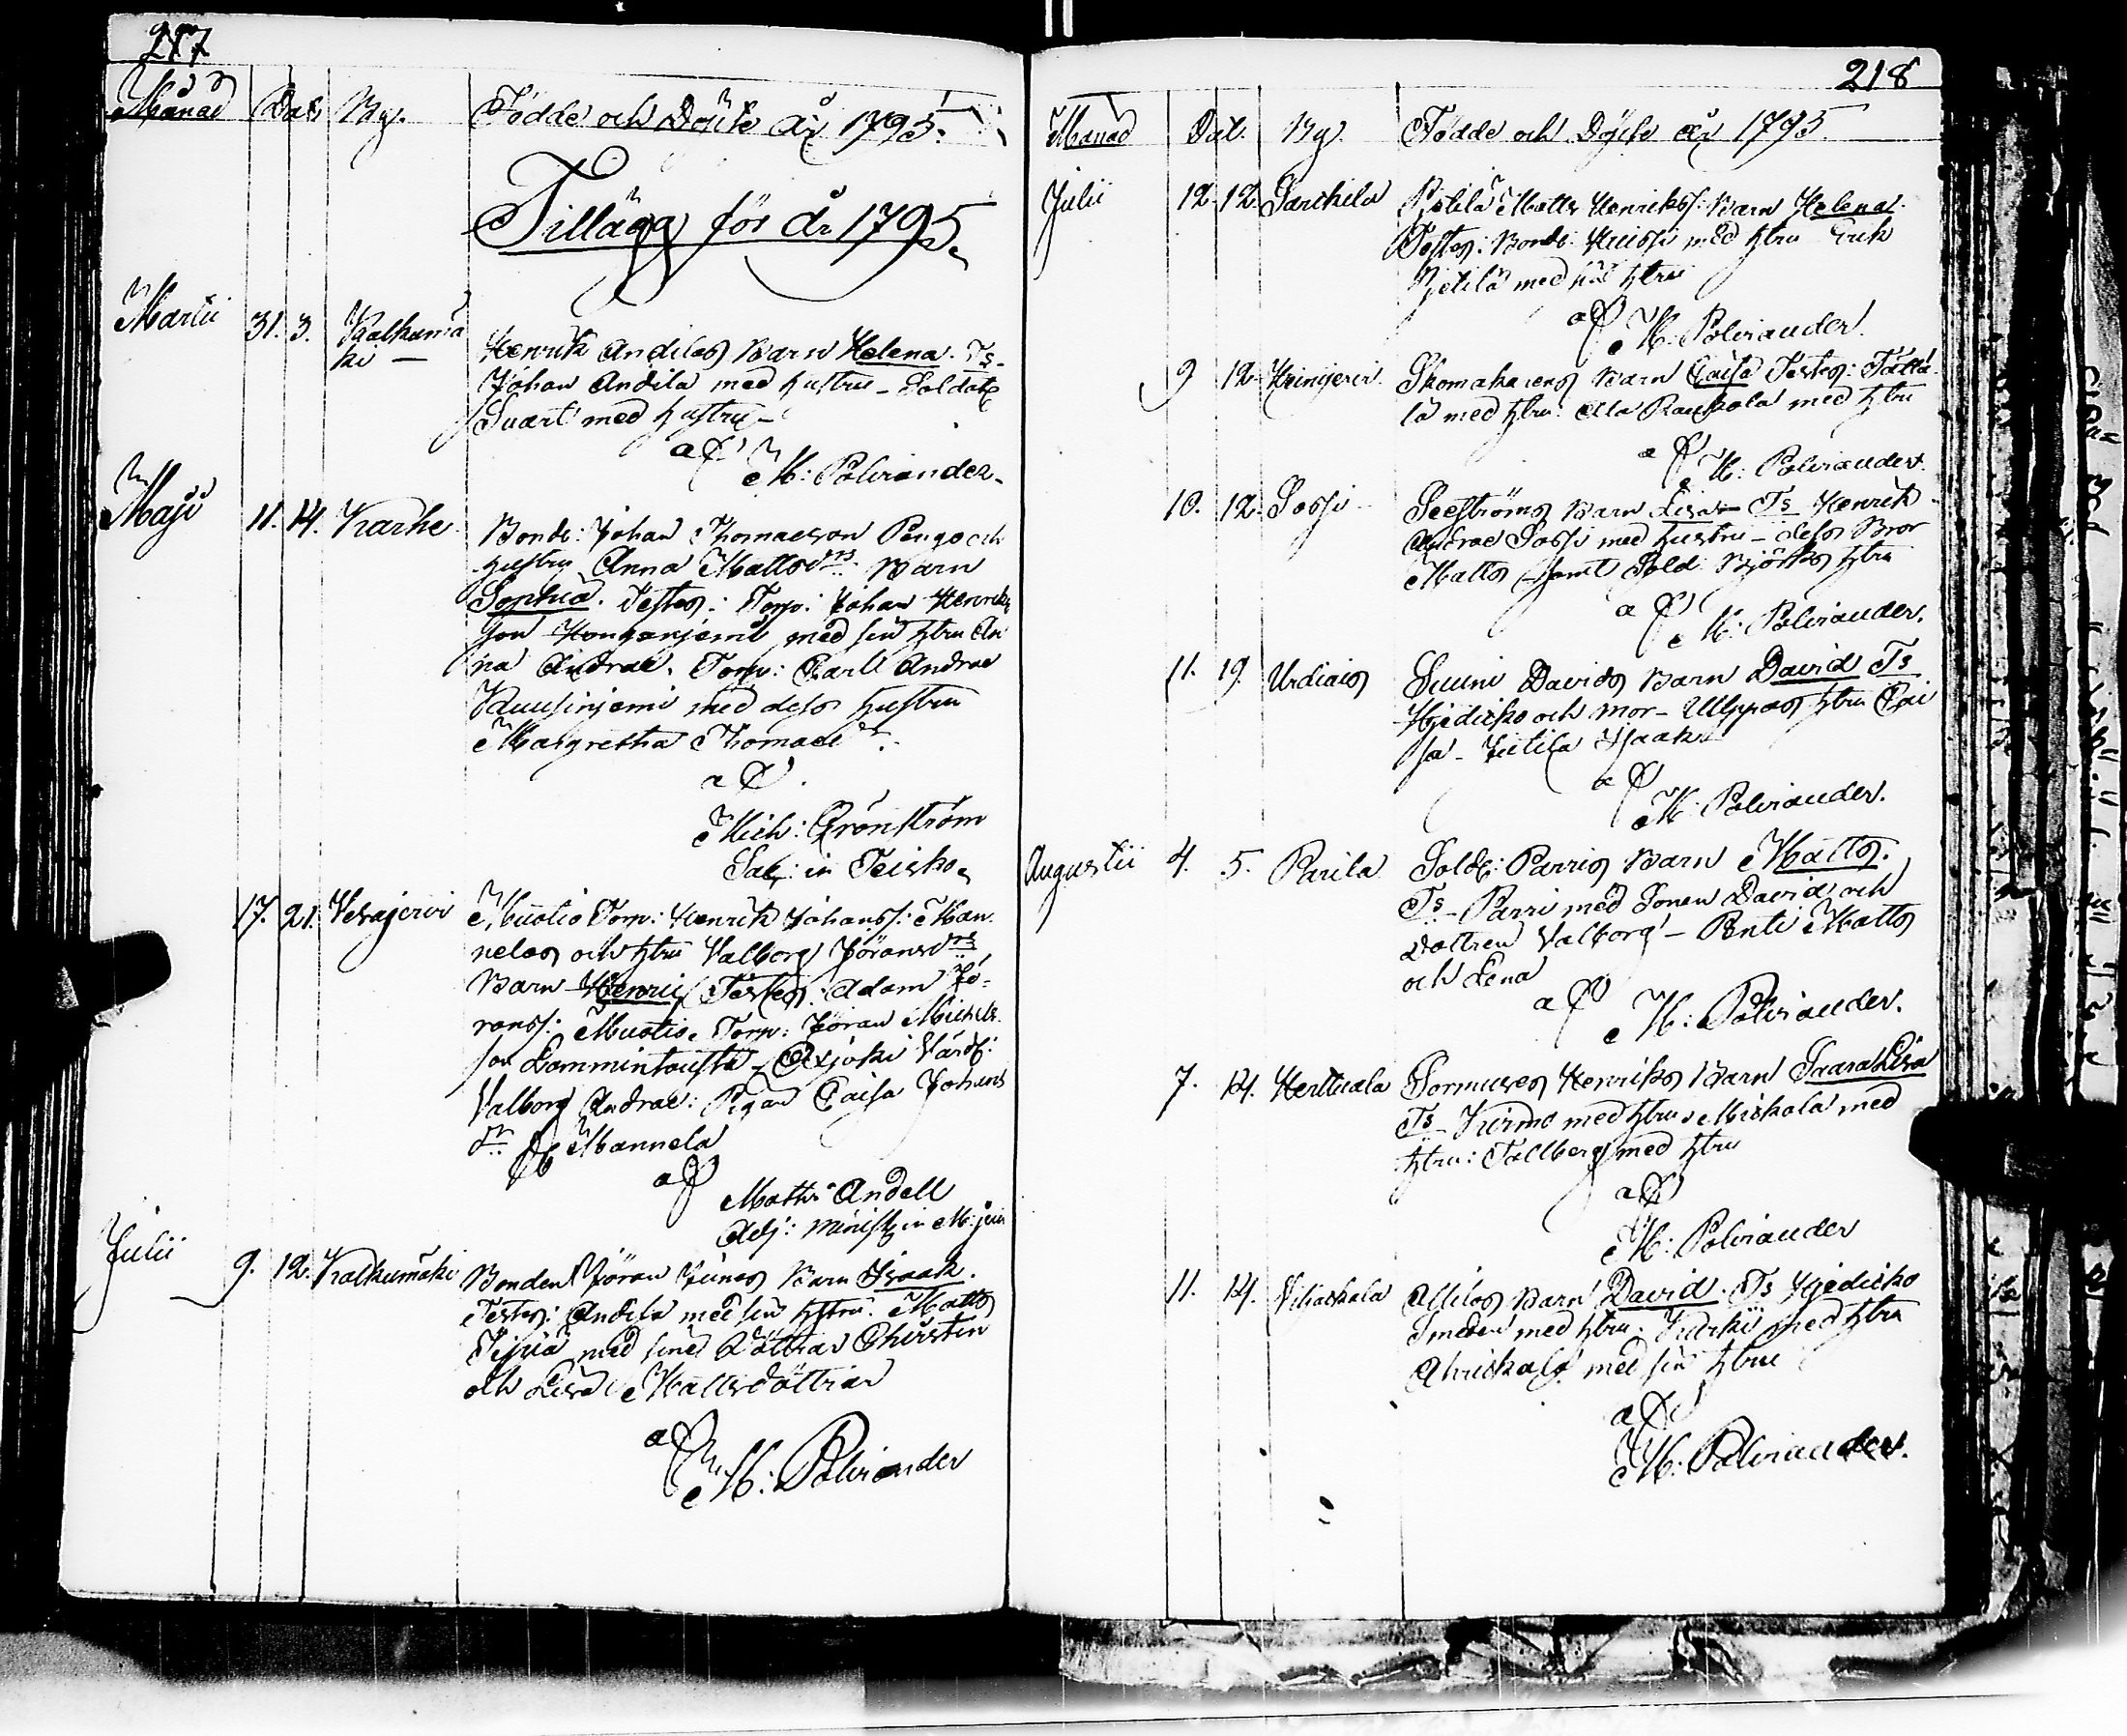 217
Månad Dat. By. Födde och Döpte År 1795.
Tillägg för år 1795.
Martii 31. 3. Kalkumä
ki —
Henrik Andilas Barn Helena. Ts.
Johan Andila med hustru - Soldat
Svart med hustru -
af
M: Polviander.
Maji 11. 14. Karhe
Bond: Johan Thomasson Pengo och
hustru Anna Mattsdr Barn
Sophia. Testes: Torp: Johan Henriks
son Honganjemi med sin hstru An
na Andrae. Torp: Carl Andrae
Kuusinjemi med dess hustru
Margretha Thomae dr.
af
Mich: Grönström
Sac: in Teisko
17. 21. Vesajervi
Muotio Torp: Henrik Johanss: Man
nelas och hstru Valborg Jöransdr
Barn Henric Testes: Adam Jö-
ranss: Muotio. Torp: Jöran Michels
son Lammintausta
Valborg Andrae: Pigan Caisa Johans
dr Mannela
af
Matth: Andell
Adj: Minist: in
Julii 9. 12. Kalkumäki
Bonden Jöran Junes Barn Isaak.
Testes: Andila med sin hstru. Matts
med sine Döttrar Christin
och Lisa Mattsdöttrar
af
M: Polviander
218
Månad Dat. By. Födde och Döpte år 1795.
Julii 12. 12. Sarkila
Pjetilä Matts Henrikss: Barn Helena.
Testes: Bond: Heissi med hstru Erik
Pjetilä med sin hstru
af
M: Polviander.
9 12. Heinijervi.
Skomakarens Barn Caisa Testes:
lä med hstru: Ella Raukola med hstru
af
M: Polviander.
10. 12. Sossi
Seeströms Barn Lisa - Ts Henrik
Andrae Sassi med hustru - dess Bror
Matts samt Sold: Björks hstru
af
M: Polviander.
11. 19. Urdiais
Suuni Davids Barn David Ts
Hjedicko och Mor - Ulppas hstru Cai
sa - Jutila Isaak
af
M: Polviander.
Augustii 4. 5. Parila
Sold: Parris Barn Matts.
Ts - Parri med Sonen David och
dottren Valborg - Penti Matts
och Lena
af
M: Polviander.
7. 14. Herttuala
Sormuses Henriks Barn Saara Lisa
Ts - Kurmo med hstru Miskala med
hstru: Tallberg med hstru
af
M: Polviander
11. 14. Vihaskala
Alilas Barn David. Ts Hjedicko
Smeden med hstru. Kurki med hstru
Ahriskala med sin hstru
af
M: Polviander.